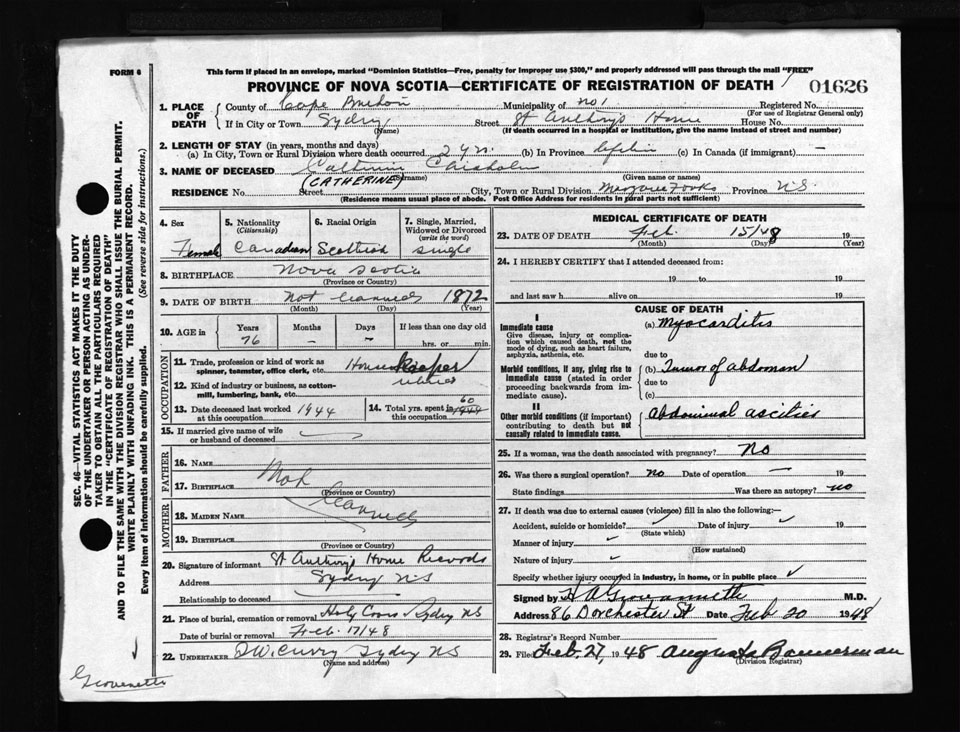 FORM 6
This form if placed in an envelope, marked "Dominion Statistics—Free, penalty for improper use $300," and properly addressed will pass through the mail "FREE"
PROVINCE OF NOVA SCOTIA—CERTIFICATE OF REGISTRATION OF DEATH
01626
1. PLACE OF DEATH
County of Cape Breton Municipality of No 1 Registered No.
(For use of Registrar General only)
If in City or Town Sydney Street St Anthony's Home House No.
(Name) (If death occurred in a hospital or institution, give the name instead of street and number)
2. LENGTH OF STAY (in years, months and days)
(a) In City, Town or Rural Division where death occurred 2 yrs. (b) In Province (c) In Canada (if immigrant) —
3. NAME OF DECEASED Catherine Chisholm
(CATHERINE) (Surname) (Given name or names)
RESIDENCE No. Street City, Town or Rural Division Margaree Forks Province N.S.
(Residence means usual place of abode. Post Office Address for residents in rural parts not sufficient)
4. Sex
Female
5. Nationality
(Citizenship)
Canadian
6. Racial Origin
Scottish
7. Single, Married, Widowed or Divorced
(write the word)
Single
8. BIRTHPLACE Nova Scotia
(Province or Country)
9. DATE OF BIRTH Not learned 1872
(Month) (Day) (Year)
10. AGE in Years Months Days If less than one day old
76 — — hrs. or min.
OCCUPATION
11. Trade, profession or kind of work as spinner, teamster, office clerk, etc. Housekeeper
12. Kind of industry or business, as cotton-mill, lumbering, bank, etc. retired
13. Date deceased last worked at this occupation 1944
14. Total yrs. spent in this occupation 60 1944
15. If married give name of wife or husband of deceased
FATHER
16. NAME
17. BIRTHPLACE Not
(Province or Country)
MOTHER
18. MAIDEN NAME learned
19. BIRTHPLACE
(Province or Country)
20. Signature of informant St Anthony's Home Records
Address Sydney N S
Relationship to deceased
21. Place of burial, cremation or removal Holy Cross Sydney NS
Date of burial or removal Feb. 17/48
22. UNDERTAKER D W. Curry Sydney NS
(Name and address)
MEDICAL CERTIFICATE OF DEATH
23. DATE OF DEATH Feb. 15/48 19
(Month) (Day) (Year)
24. I HEREBY CERTIFY that I attended deceased from:
19 to 19
and last saw h alive on 19
CAUSE OF DEATH
I
Immediate cause (a) Myocarditis
Give disease, injury or complication which caused death, not the mode of dying, such as heart failure, asphyxia, asthenia, etc.
due to
Morbid conditions, if any, giving rise to immediate cause (stated in order proceeding backwards from immediate cause). (b) Tumor of abdoman
due to
(c)
II
Other morbid conditions (if important) contributing to death but not causally related to immediate cause. Abdominal ascities
25. If a woman, was the death associated with pregnancy? No
26. Was there a surgical operation? no Date of operation — 19
State findings Was there an autopsy? no
27. If death was due to external causes (violence) fill in also the following:—
Accident, suicide or homicide? Date of injury 19
(State which)
Manner of injury
(How sustained)
Nature of injury
Specify whether injury occurred in industry, in home, or in public place
Signed by M.D.
Address 86 Dorchester St Date Feb 20 1948
28. Registrar's Record Number
29. Filed Feb. 27, 1948 Augusta Bannerman
(Division Registrar)
SEC. 46—VITAL STATISTICS ACT MAKES IT THE DUTY
OF THE UNDERTAKER OR PERSON ACTING AS UNDER-
TAKER TO OBTAIN ALL THE PARTICULARS REQUIRED
IN THE "CERTIFICATE OF REGISTRATION OF DEATH"
AND TO FILE THE SAME WITH THE DIVISION REGISTRAR WHO SHALL ISSUE THE BURIAL PERMIT.
WRITE PLAINLY WITH UNFADING INK. THIS IS A PERMANENT RECORD.
Every item of information should be carefully supplied. (See reverse side for instructions.)